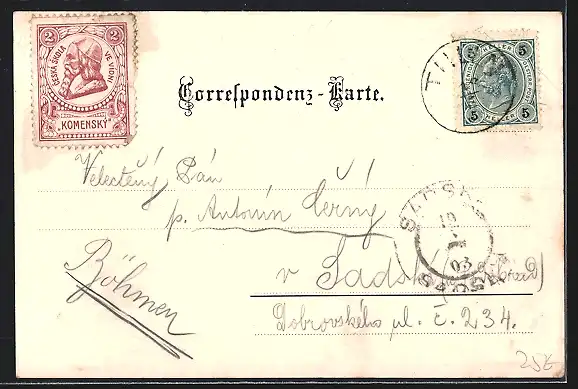 2 2
ČESKÁ ŠKOLA VE VÍDNI
"KOMENSKÝ"
5 5
5 5
Correspondenz-Karte.
Velectěný Pán
p. Antonín Černý
v Sadské
SADSKÁ
03
SADSKA
Böhmen
Dobrovského ul. č. 234.